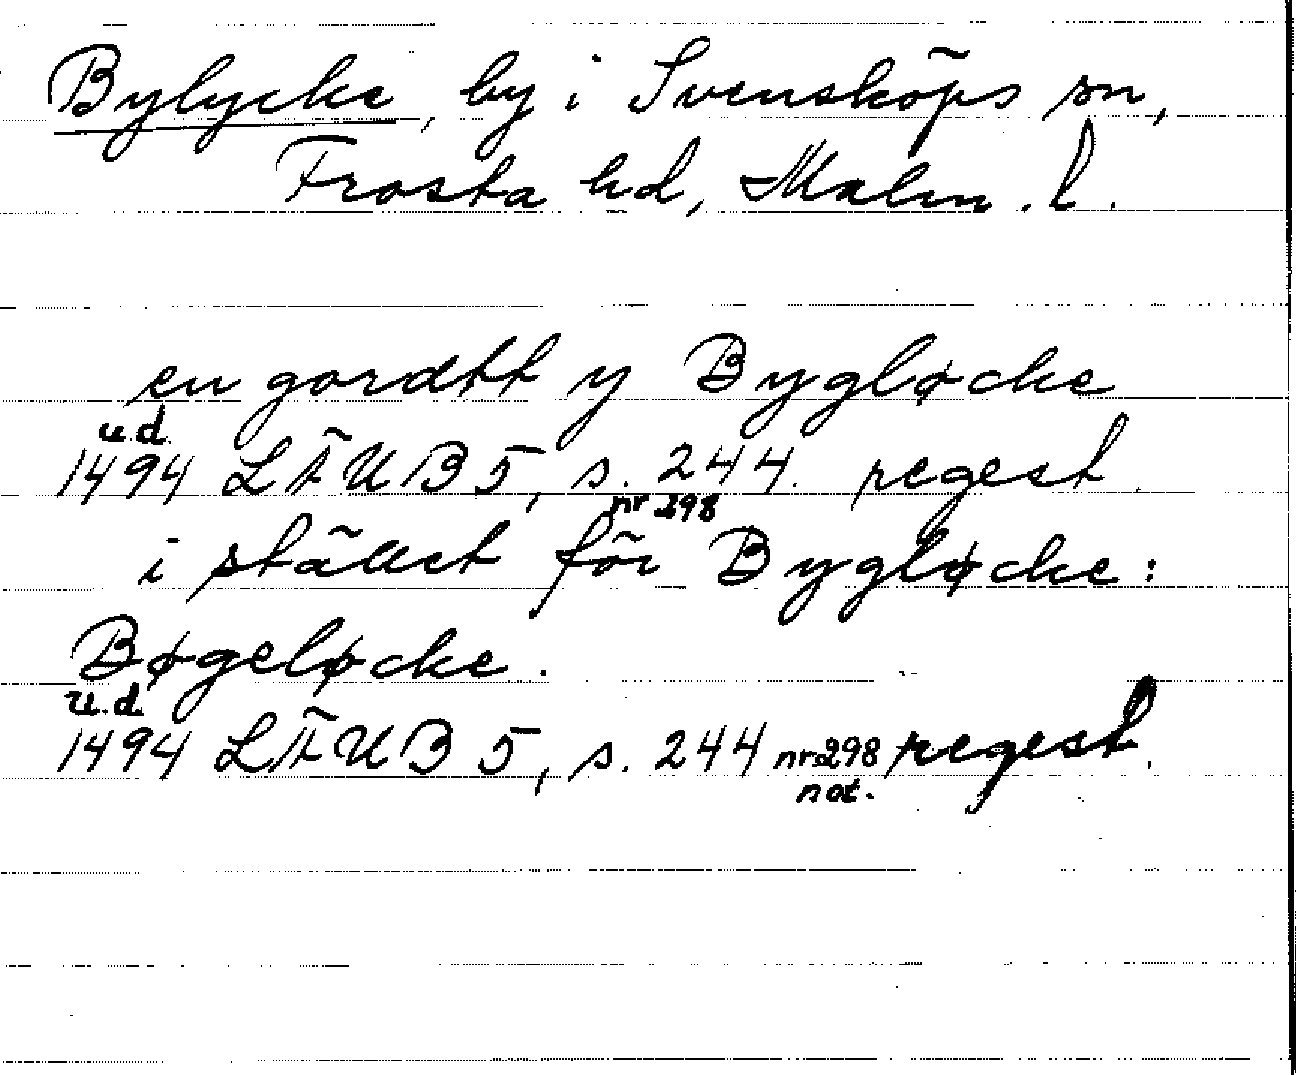 Bylycke, by i Svensköps sn,
Frosta hd, Malm. l.
en gordtt y Bygløcke
u.d.
1494 LÄUB 5, s. 244. regest
nr 298
i stället för Bygløcke:
Bøgeløcke.
u.d.
1494 LÄUB 5, s. 244 nr 298 regest.
not.